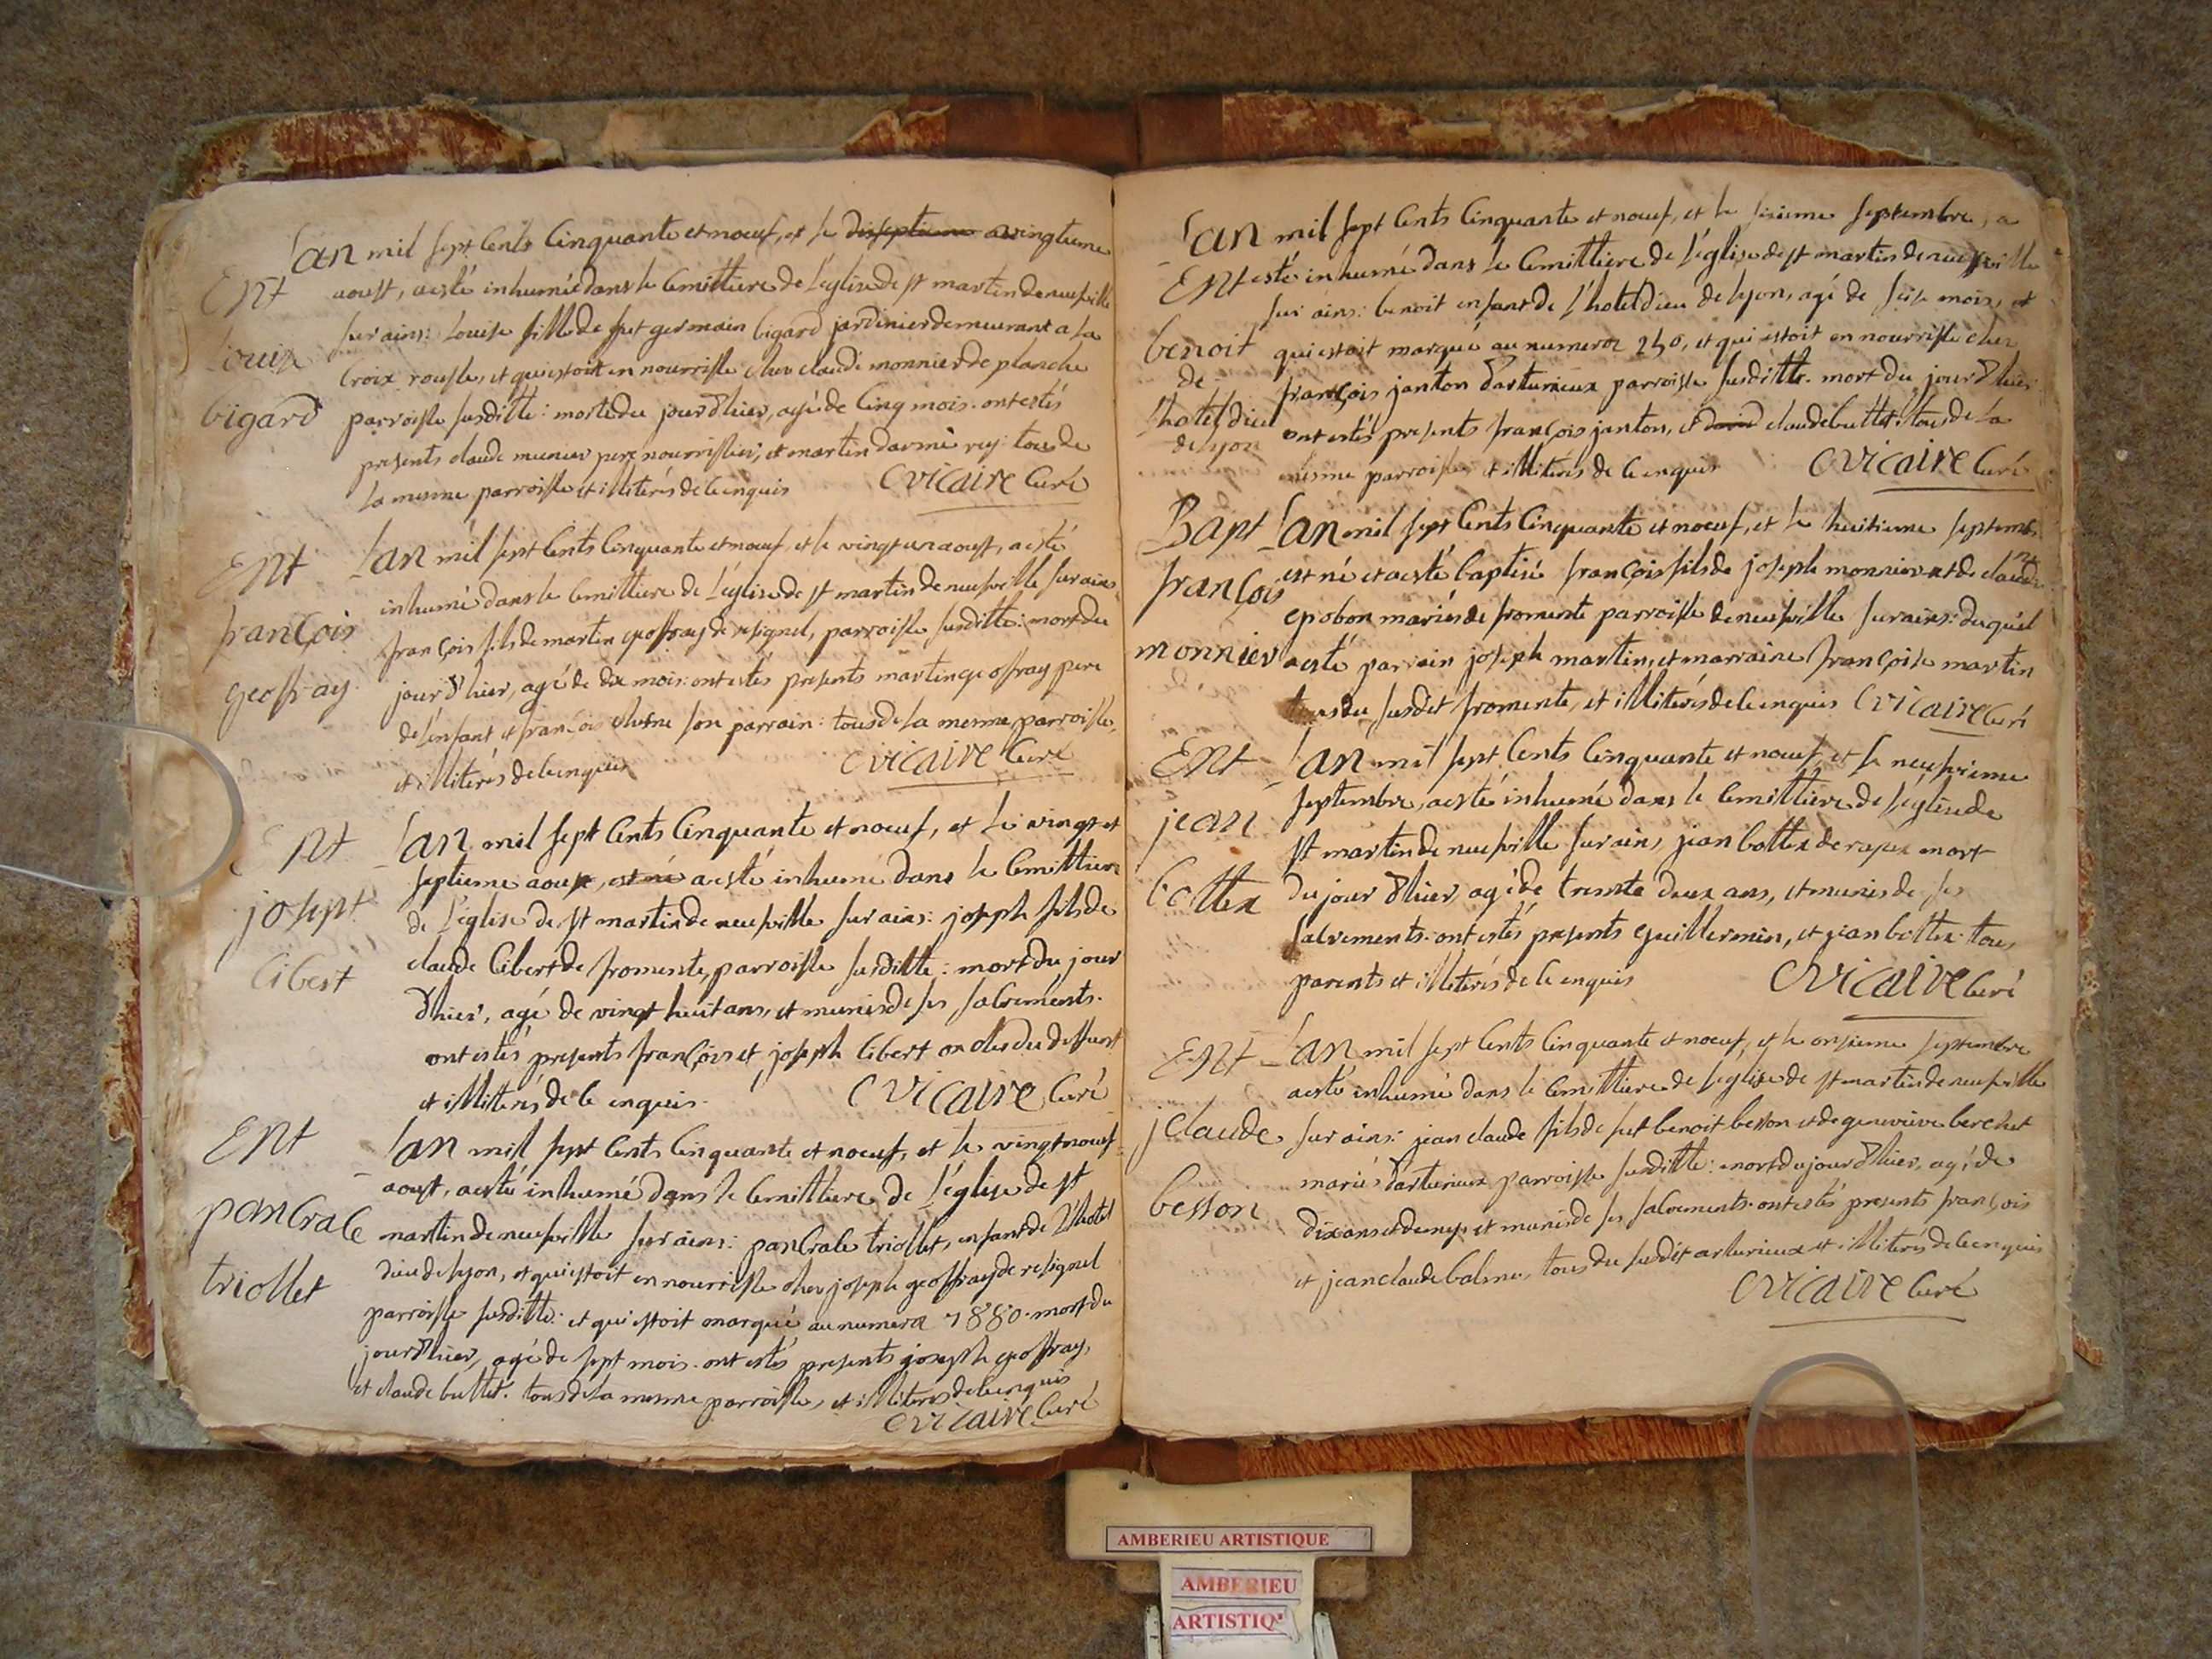 L'an mil sept Cents Cinquante et noeuf, et le dixseptieme vingtieme
Ent
aoust, a esté inhumée dans le Cemittiere de L'eglise de st martin de neufville
Louise
sur ains: Louise fille de fut germain bigard jardinier demeurant a La
Croix rousse, et qui estoit en nourrisse chez claude monnier de planche
bigard
parroisse susditte: morte du jour d'hier, agée de Cinq mois. ont estés
presents claude munier pere nourrissier, et martin darmè rey: tous de
La mesme parroisse et illiterés de Ce enquis Cvicaire Curé
Ent
L'an mil sept Cents Cinquante et noeuf, et le vingt un aoust, a esté
inhumé dans le Cemittiere de L'eglise de st martin de neufville sur ains
françois
françois fils de martin geoffray de resignel, parroisse susditte: mort du
geoffray
jour d'hier, agé de dix mois. ont estés presents martin geoffray pere
de l'enfant et françois son parrain: tous de La mesme parroisse,
et illiterés de Ce enquis Cvicaire Curé
Ent
L'an mil sept Cents Cinquante et noeuf, et Le vingt et
septieme aoust, est né a esté inhumé dans le Cemittiere
josept
de L'eglise de st martin de neufville sur ains: joseph fils de
Libert
claude Libert de fromente, parroisse susditte: mort du jour
d'hier, agé de vingt huit ans, et munis de ses saCrements.
ont estés presents françois et joseph Libert oncles du deffunt
et illiterés de Ce enquis. Cvicaire Curé
Ent
L'an mil sept Cents Cinquante et noeuf, et le vingt noeuf
aoust, a esté inhumé dans le Cemittiere de L'eglise de st
panCraCe
martin de neufville sur ains: panCraCe triollet, enfant de L'hotel
triollet
dieu de Lyon, et qui estoit en nourrisse chez joseph geoffray de resignel
parroisse susditte. et qui estoit marqué au numero 1880. mort du
jour d'hier, agé de sept mois. ont estés presents joseph geoffray,
et claude buttet. tous de La mesme parroisse, et illiterés de Ce enquis
Cvicaire Curé
L'an mil sept Cents Cinquante et noeuf, et le sixieme septembre, a
Ent
esté inhumé dans le Cemittiere de L'eglise de st martin de neufville
sur ains: benoit enfant de L'hotel dieu de Lyon, agé de seise mois, et
benoit
qui estoit marqué au numero 240, et qui estoit en nourrisse chez
de
françois janton d'arturieux parroisse susditte. mort du jour d'hier
L'hotel dieu
ont estés presents françois janton, et claude buttet: tous de La
de Lyon
mesme parroisse et illiterés de Ce enquis Cvicaire Curé
Bapt
L'an mil sept Cents Cinquante et noeuf, et le huitieme septemb.
est né et a esté baptisé françois fils de joseph monnier et de claudine
françois
epobon mariés de fromente parroisse de neufville sur ains: duquel
monnier
a esté parrain joseph martin, et marraine françoise martin
tous du susdit fromente, et illiterés de Ce enquis Cvicaire Curé
Ent
L'an mil sept Cents Cinquante et noeuf, et le neufvieme
septembre, a esté inhumé dans le Cemittiere de L'eglise de
jean
st martin de neufville sur ains, jean bottex de mort
bottex
du jour d'hier, agé de trente deux ans, et munis de ses
saCrements. ont estés presents guillermin, et jean bottex. tous
parents et illiterés de Ce enquis Cvicaire Curé
Ent
L'an mil sept Cents Cinquante et noeuf, et le onsieme septembre
a esté inhumé dans le Cemittiere de L'eglise de st martin de neufville
jClaude
sur ains: jean claude fils de fut benoit besson et de genevieve berchet
besson
mariés d'arturieux parroisse susditte: mort du jour d'hier, agé de
dix ans et demy et munis de ses saCrements. ont estés presents françois
et jean claude balme, tous du susdit arturieux et illiterés de Ce enquis
Cvicaire Curé
AMBERIEU ARTISTIQUE
AMBERIEU
ARTISTIQ